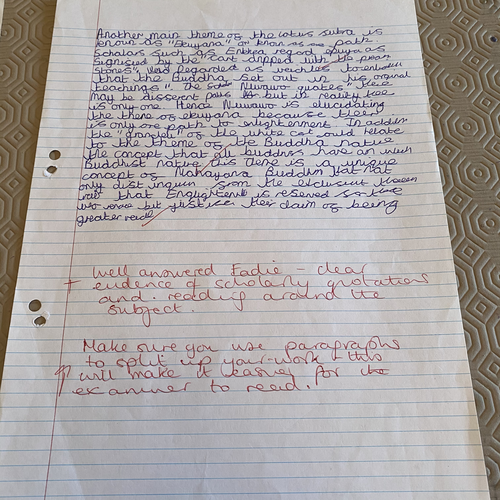 Another main theme of the lotus sutra is
known as "Ekayana" or known as one path.
Scholars such as Enkra regard ekayana as
signified by the "cart dripped with the pean
stones", and regarded as vehicles to enlighten
that the Buddha set out in his original
teachings". The Niwano quotes "there
may be different paths but in reality there
is only one. Hence Niwano is elucidating
the theme of ekayana because there
is only one path to enlightenment. In addition
the of the white could relate
to the theme of the Buddha nature
the concept that all buddhists have an innate
Buddhist nature, this theme is a unique
concept of Mahayana Buddhism that not
only distinguish from the elclusivst theraven
that Enlightenment is reserved for the
but justifies their claim of being
greater
+ Well answered Eadie - clear
evidence of scholarly quotations
and reading around the
subject.
↑ Make sure you use paragraphs
to split up your work - this
will make it easier for the
examiner to read.